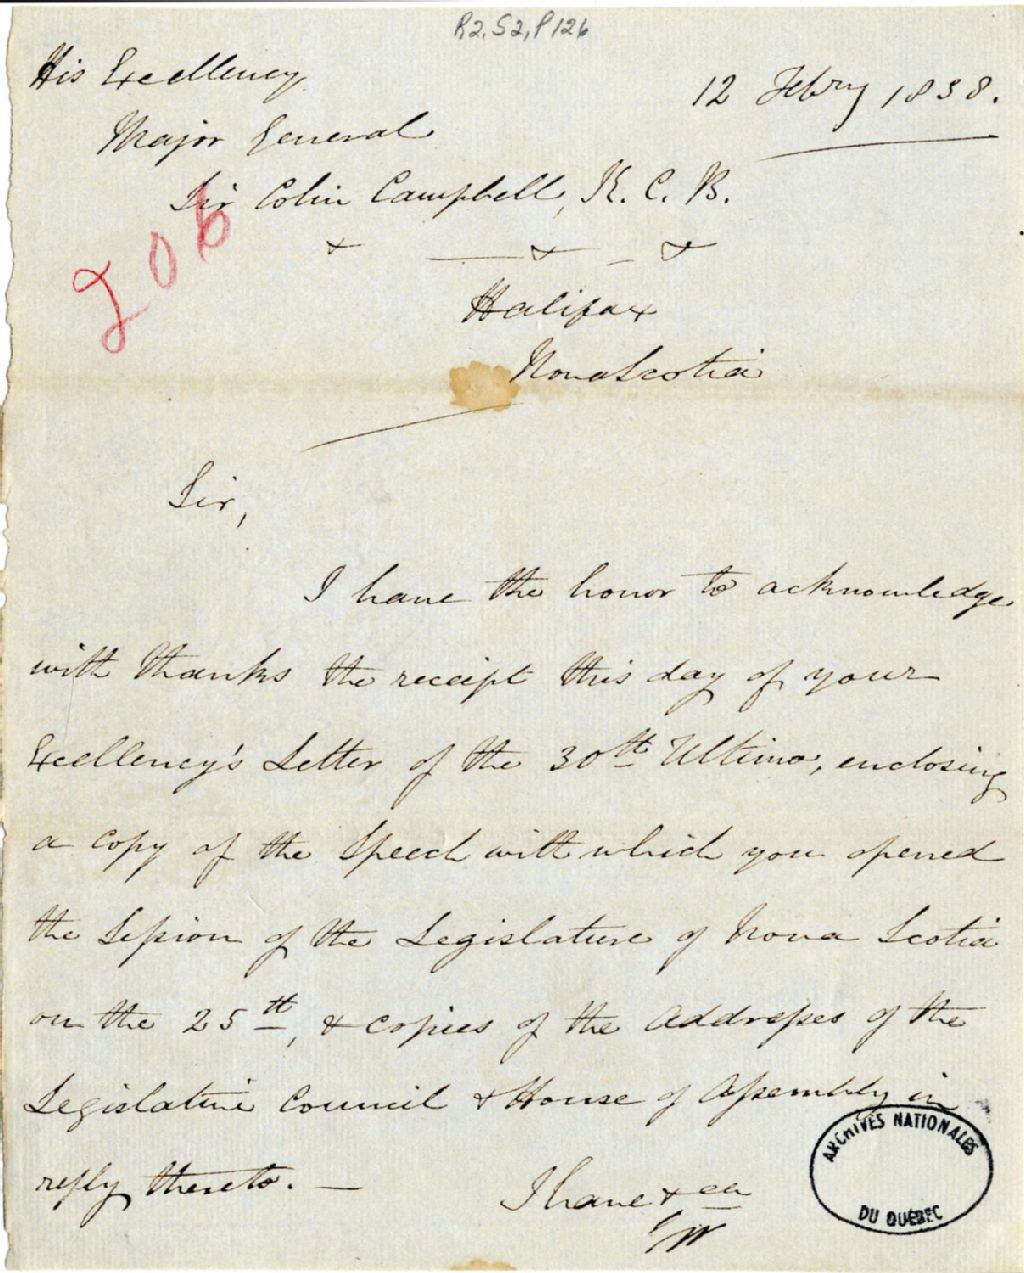 R2, S2, P126
His Excellency
12 Febry 1838.
Major General
Sir Colin Campbell, K. C. B.
206
& — & — &
Halifax
Nova Scotia
Sir,
I have the honor to acknowledge
with thanks the receipt this day of your
Excellency's Letter of the 30th Ultimo, enclosing
a copy of the Speech with which you opened
the Session of the Legislature of Nova Scotia
on the 25th, & copies of the Addresses of the
Legislative Council & House of Assembly in
reply thereto. —
I have & ca
ARCHIVES NATIONALES
DU QUÉBEC